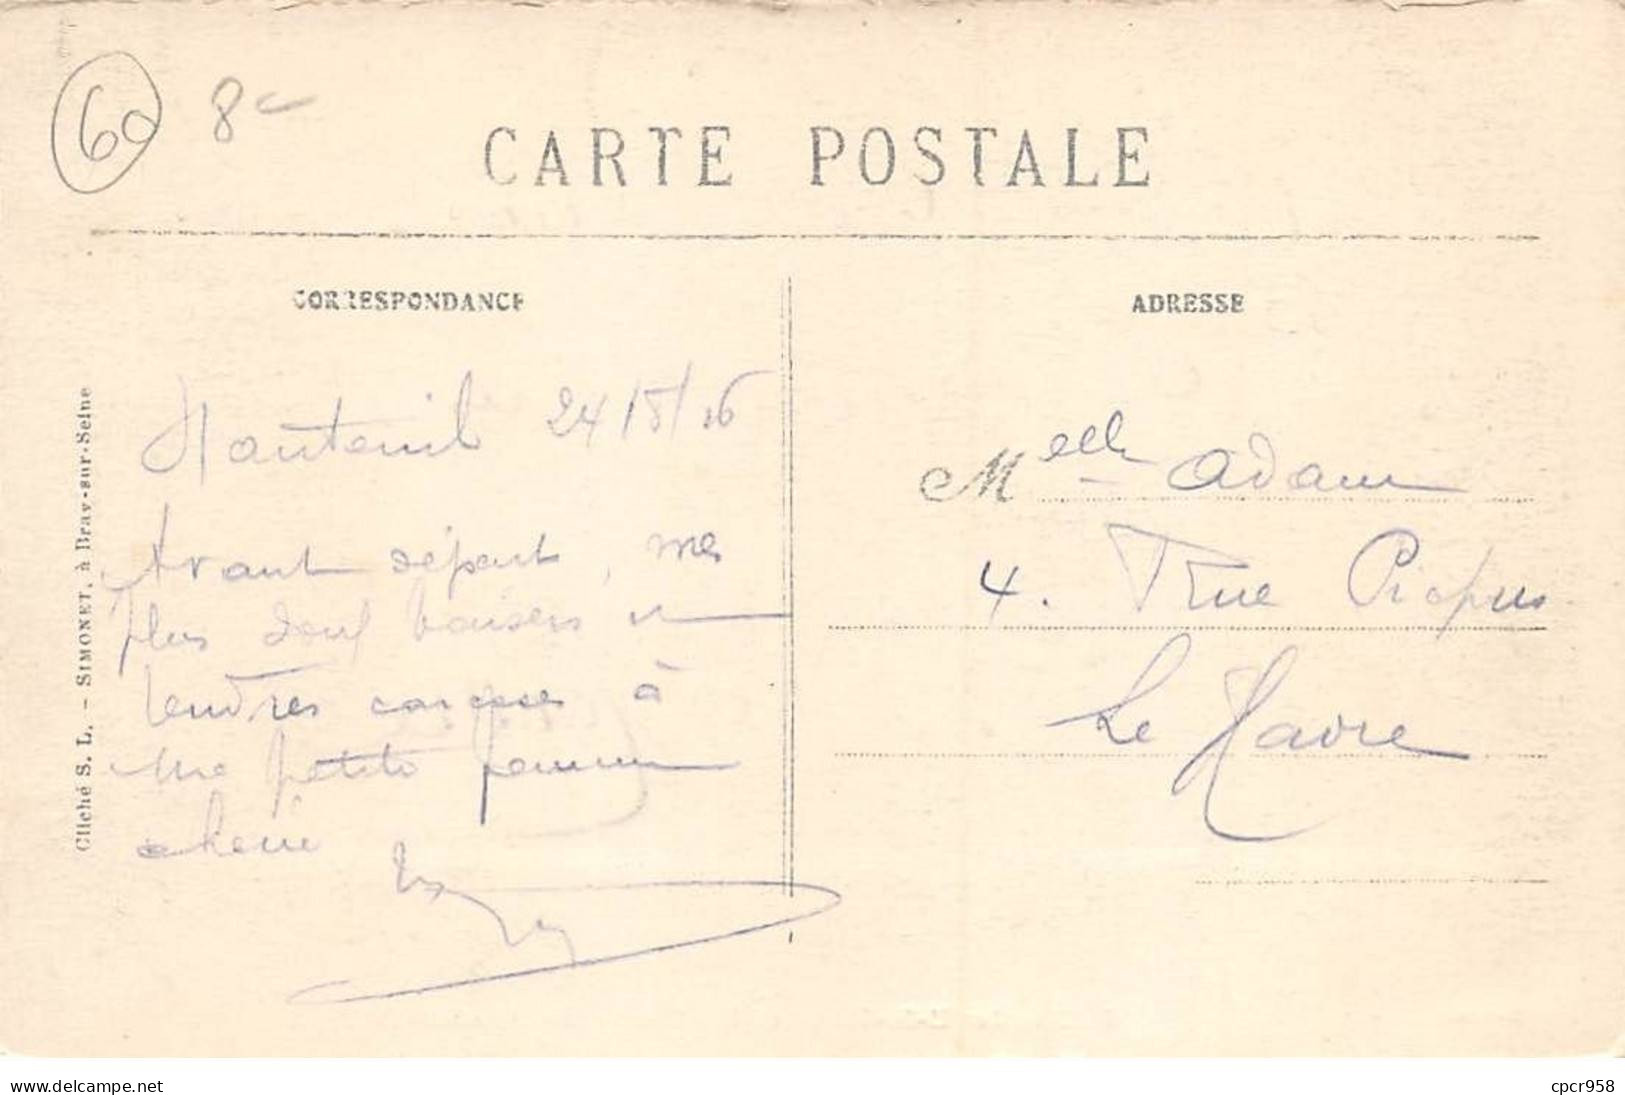 60 8
CARTE POSTALE
CORRESPONDANCE
ADRESSE
Cliché S. L. – SIMONET, à Bray-sur-Seine
Nanteuil 24/5/16
Avant départ, mes
plus doux baisers et
tendres caresses à
ma petite femme
chérie
Melle Adam
4. rue Picpus
Le Havre
www.delcampe.net
cpcr958